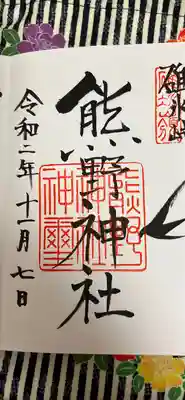 碓氷峠
熊野神社
熊野
神璽
令和二年十一月七日